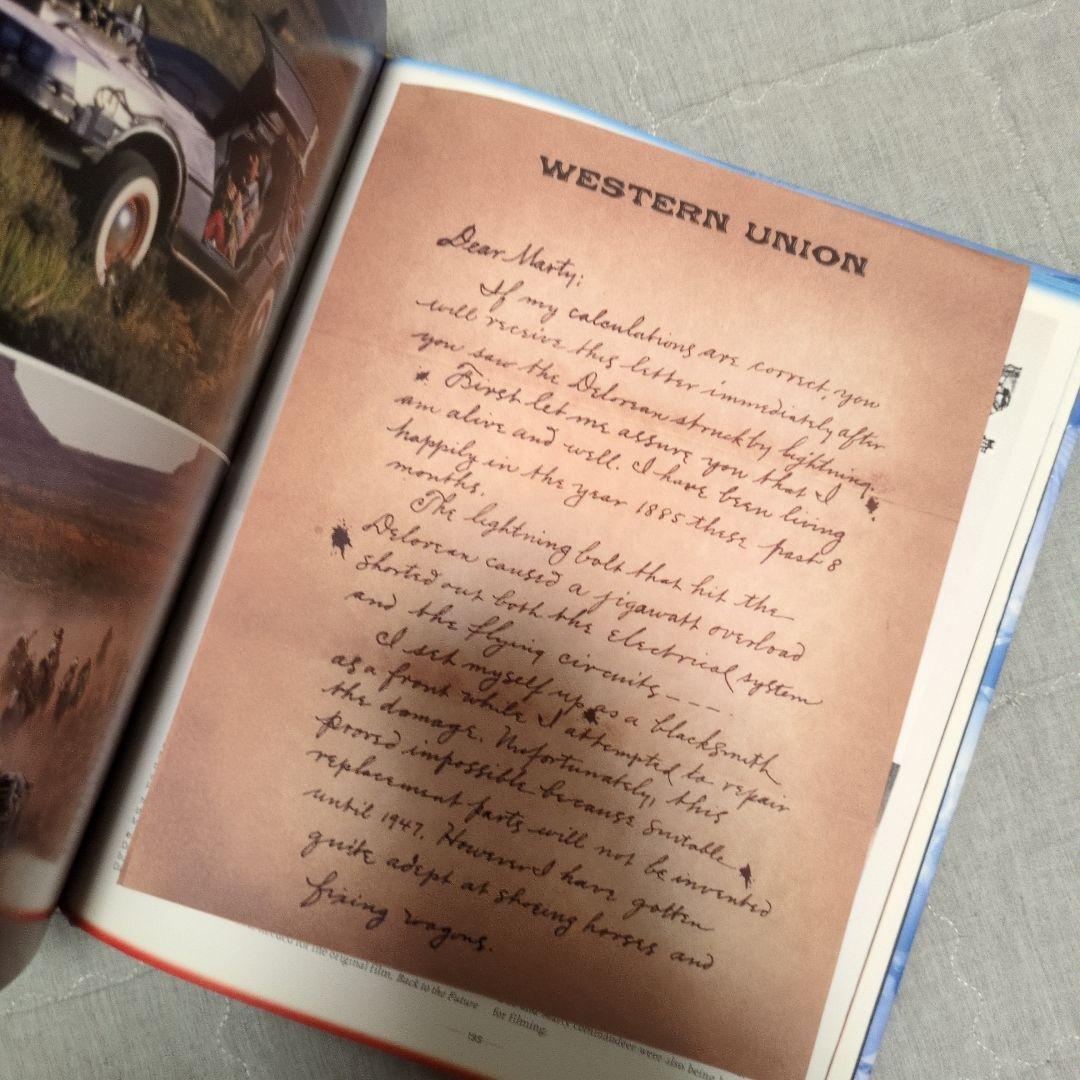 WESTERN UNION
Dear Marty:
If my calculations are correct, you
will receive this letter immediately after
you saw the Delorean struck by lightning.
First let me assure you that I
am alive and well. I have been living
happily in the year 1885 these past 8
months.
The lightning bolt that hit the
Delorean caused a jigawatt overload
shorted out both the electrical system
and the flying circuits - - - -
I set myself up as a blacksmith
as a front while I attempted to repair
the damage. Unfortunately, this
proved impossible because suitable
replacement parts will not be invented
until 1947. However I have gotten
quite adept at shoeing horses and
fixing wagons.
needed for the original film. Back to the Future
commandeer were also being
for filming.